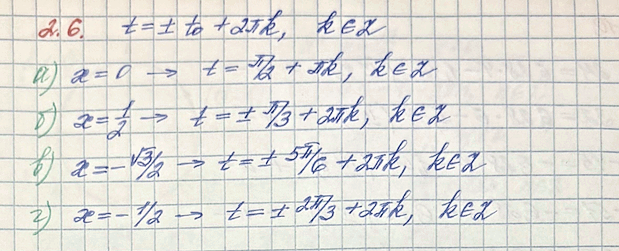 2.6. t = ± t₀ + 2πk, k ∈ Z
а) x = 0 → t = π/2 + πk, k ∈ Z
б) x = 1/2 → t = ± π/3 + 2πk, k ∈ Z
в) x = -√3/2 → t = ± 5π/6 + 2πk, k ∈ Z
г) x = -1/2 → t = ± 2π/3 + 2πk, k ∈ Z